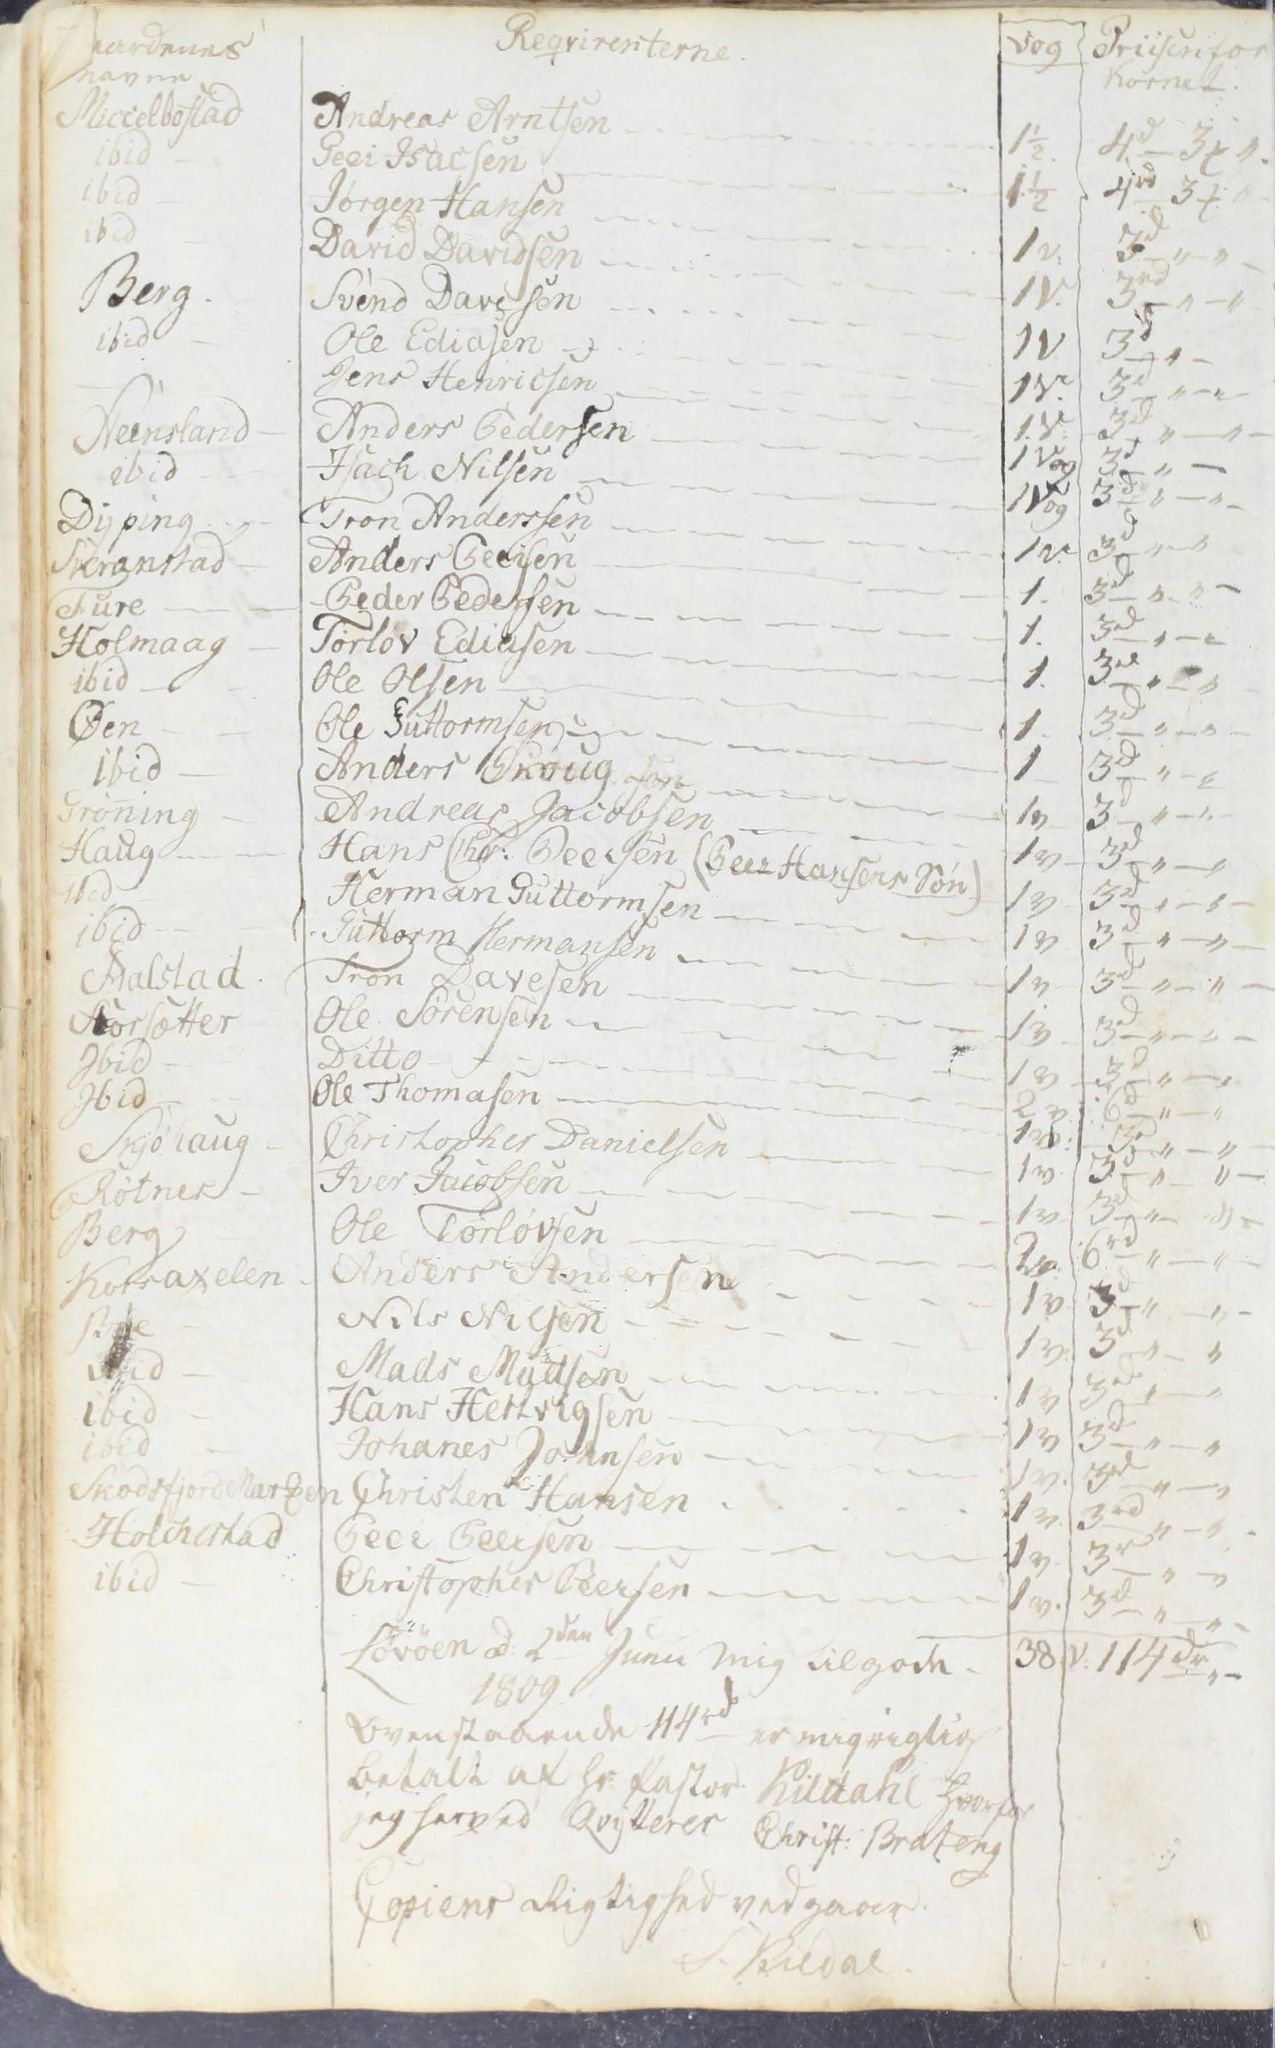 Gaardenes Reqvirenterne. Vog Priisen for
navne Kornet.
Miccelbostad Andreas Arntsen 1½. 4rd 3 "
ibid Peei Isacsen 1½ 4rd 3 "
ibid Jørgen Hansen 1v. 3rd " "
ibid David Davidsen 1V. 3rd " "
Berg. Svend Davesen 1V 3rd "
ibid Ole Ediasen 1V. 3rd " "
Jens Henricsen 1V. 3rd " "
Neensland Anders Pedersen 1Vog 3rd "
ibid Isach Nilsen 1Vog 3rd " "
Dijping Tron Anderssen 1v. 3rd " "
Skranstad Anders Peeisen 1. 3rd " "
Fure Peder Pedersen 1. 3rd " "
Holmaag Torlov Ediasen 1. 3rd " "
ibid Ole Olsen 1. 3rd " "
Øen Ole Guttormsen 1 3rd " "
Ibid Anders sen 1v 3rd " "
Grøning Andreas Jacobsen 1v 3rd " "
Haug Hans Chr. Peersen (Peer Hansens Søn) 1v 3rd " "
ibid Herman Guttormsen 1v 3rd " "
ibid Guttorm Hermansen 1v 3rd " "
Aalstad. Tron Davesen 1v 3rd " "
Storsætter Ole Sörensen 1v 3rd " "
Ibid Ditto 2v 6rd " "
Ibid Ole Thomasen 1v. 3rd " "
Skjøhaug Christopher Danielsen 1v. 3rd " "
Røtnes Iver Jacobsen 1v 3rd " "
Berg Ole Torløvsen 2v 6rd " "
Korsaxelen Anders Andersen 1v 3rd " "
Nils Nilsen 1v. 3rd " "
ibid Mads Madsen 1v 3rd " "
ibid Hans Hertvigsen 1v 3rd " "
ibid Johanes Johnsen 1v. 3rd " "
Skodsfjord Christen Hansen 1v. 3rd " "
Holchestad Peer Peersen 1v. 3rd " "
ibid Christopher Peersen 1v. 3rd " "
Løvöen d. 2den Junii mig tilgode. 38 V. 114 dr "
1809
Ovenstaaende 114rd er mig rigtig
betalt af Hr. Pastor Kildahl hvorfor
jeg herved Qvitterer Christ: Brateng
Copiens Rigtighed vedgaaer.
S. Kildal.